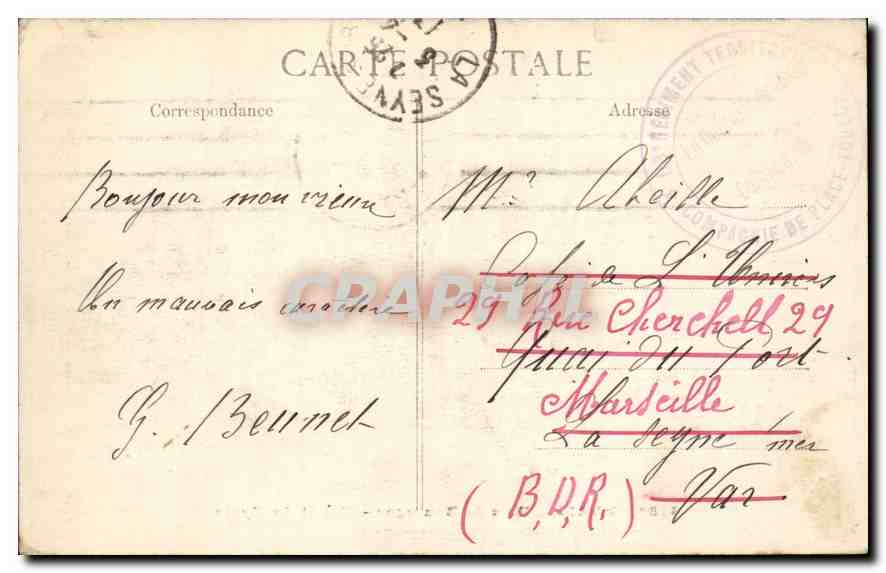 CARTE POSTALE
LA SEYNE
RÉGIMENT TERRITO
COMPAGNIE DE PLACE
Correspondance
Adresse
Bonjour mon vieux
Un mauvais caractère
G. Beunet
Mr Abeille
Café de L'Univers
29 Rue Cherchell 29
Quai du Port
Marseille
La Seyne s/mer
(B.D.R.) Var
CPAPHIL